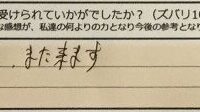 受けられていかがでしたか？（ズバリ1
な感想が、私達の何よりの力となり今後の参考とな
また来ます